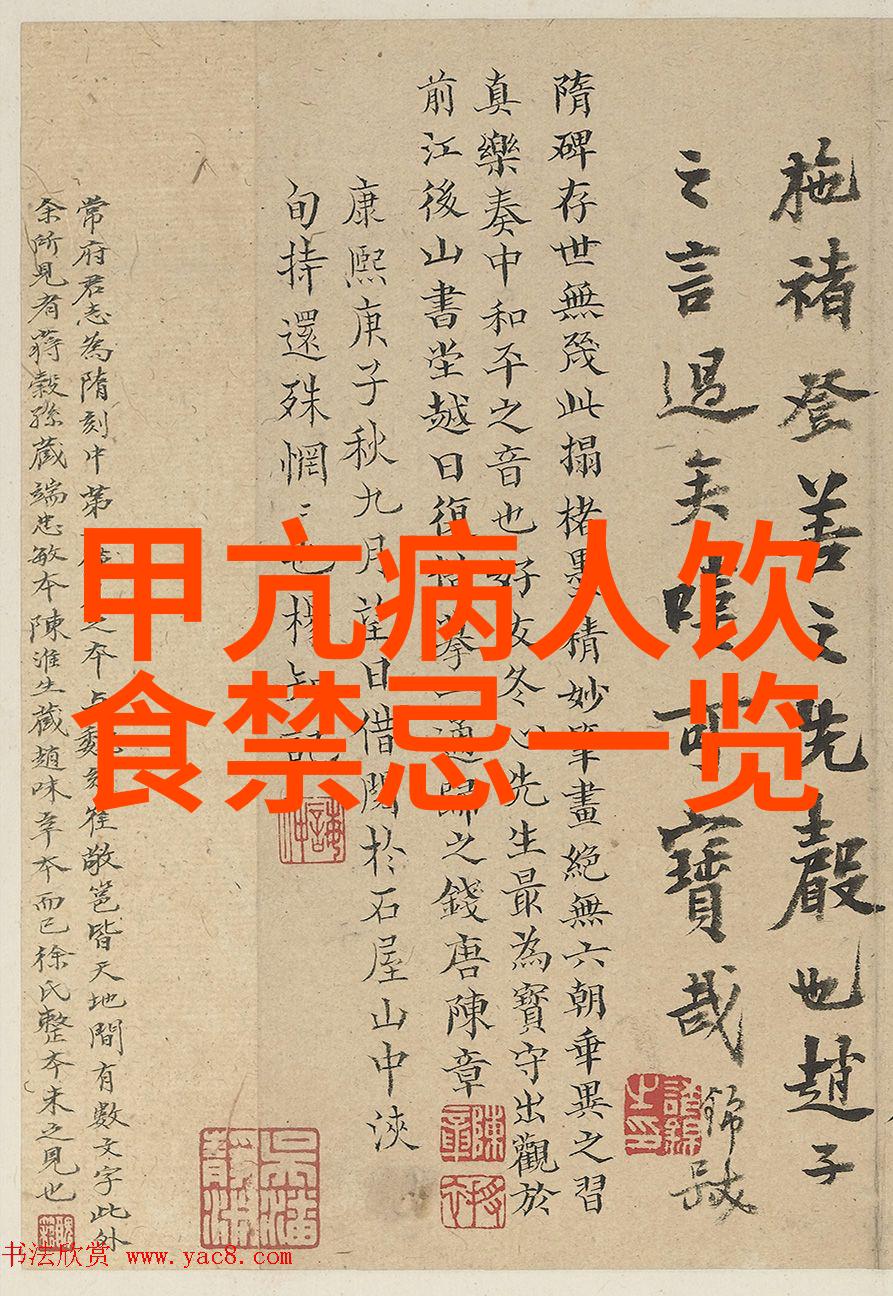 甲亢病人饮
食禁忌一览
施褚登善之先聲也趙子
之言過矣 可寶哉 錦
隋碑存世無幾此搨楮墨精妙筆畫絕無六朝乖異之習
真樂奏中和平之音也好友冬心先生最為寶守出觀於
前江後山書堂越日復 摹一通歸之錢唐陳章
康熙庚子秋九月望日借閱於石屋山中浹
旬持還殊惘 也 記
常府君志為隋刻中第 之本 魏刻崔敬邕皆天地間有數文字此外
余所見有蔣穀孫藏端忠敏本陳淮生藏趙味辛本而已徐氏整本未之見也
书法欣赏 www.yac8.com